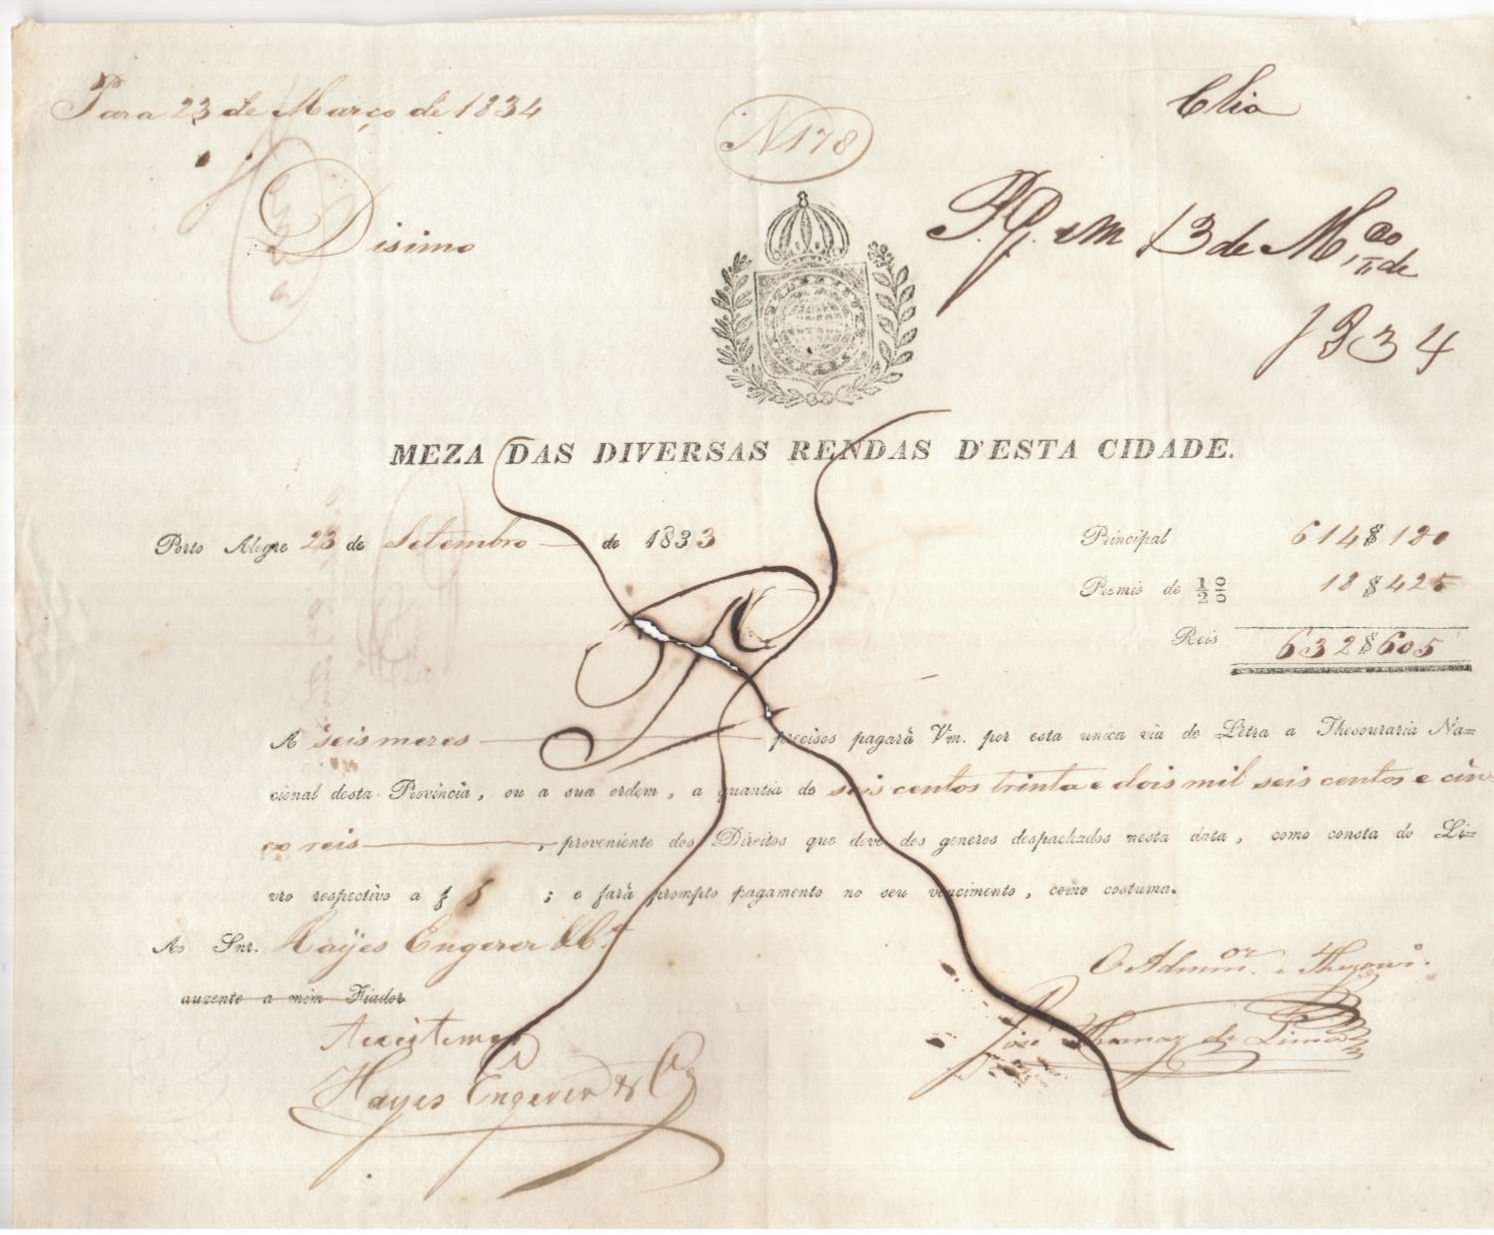 Para 23 de Março de 1834
Clio
N 178
Disimo
P.G. em 13 de M.ço de
1834
MEZA DAS DIVERSAS RENDAS D'ESTA CIDADE.
Porto Alegre 23 de Setembro de 1833
Principal 614$180
Premio de 1/2 % 18$425
Reis 632$605
A seis mezes precisos pagará Vm. por esta unica via de Letra a Thesouraria Na=
cional desta Provincia, ou a sua ordem, a quantia de seis centos trinta e dois mil seis centos e cin
co reis, proveniente dos Direitos que deve dos generos despachados nesta data, como consta do Li=
vro respectivo a f 5 ; e fará prompto pagamento no seu vencimento, como costuma.
Ao Snr. Hayes Engerer & C.ª
auzente a mim Fiador
O Admin.or e Thezour.o
Aceitamos
José Thomaz de Lima
Hayes Engerer & Ca